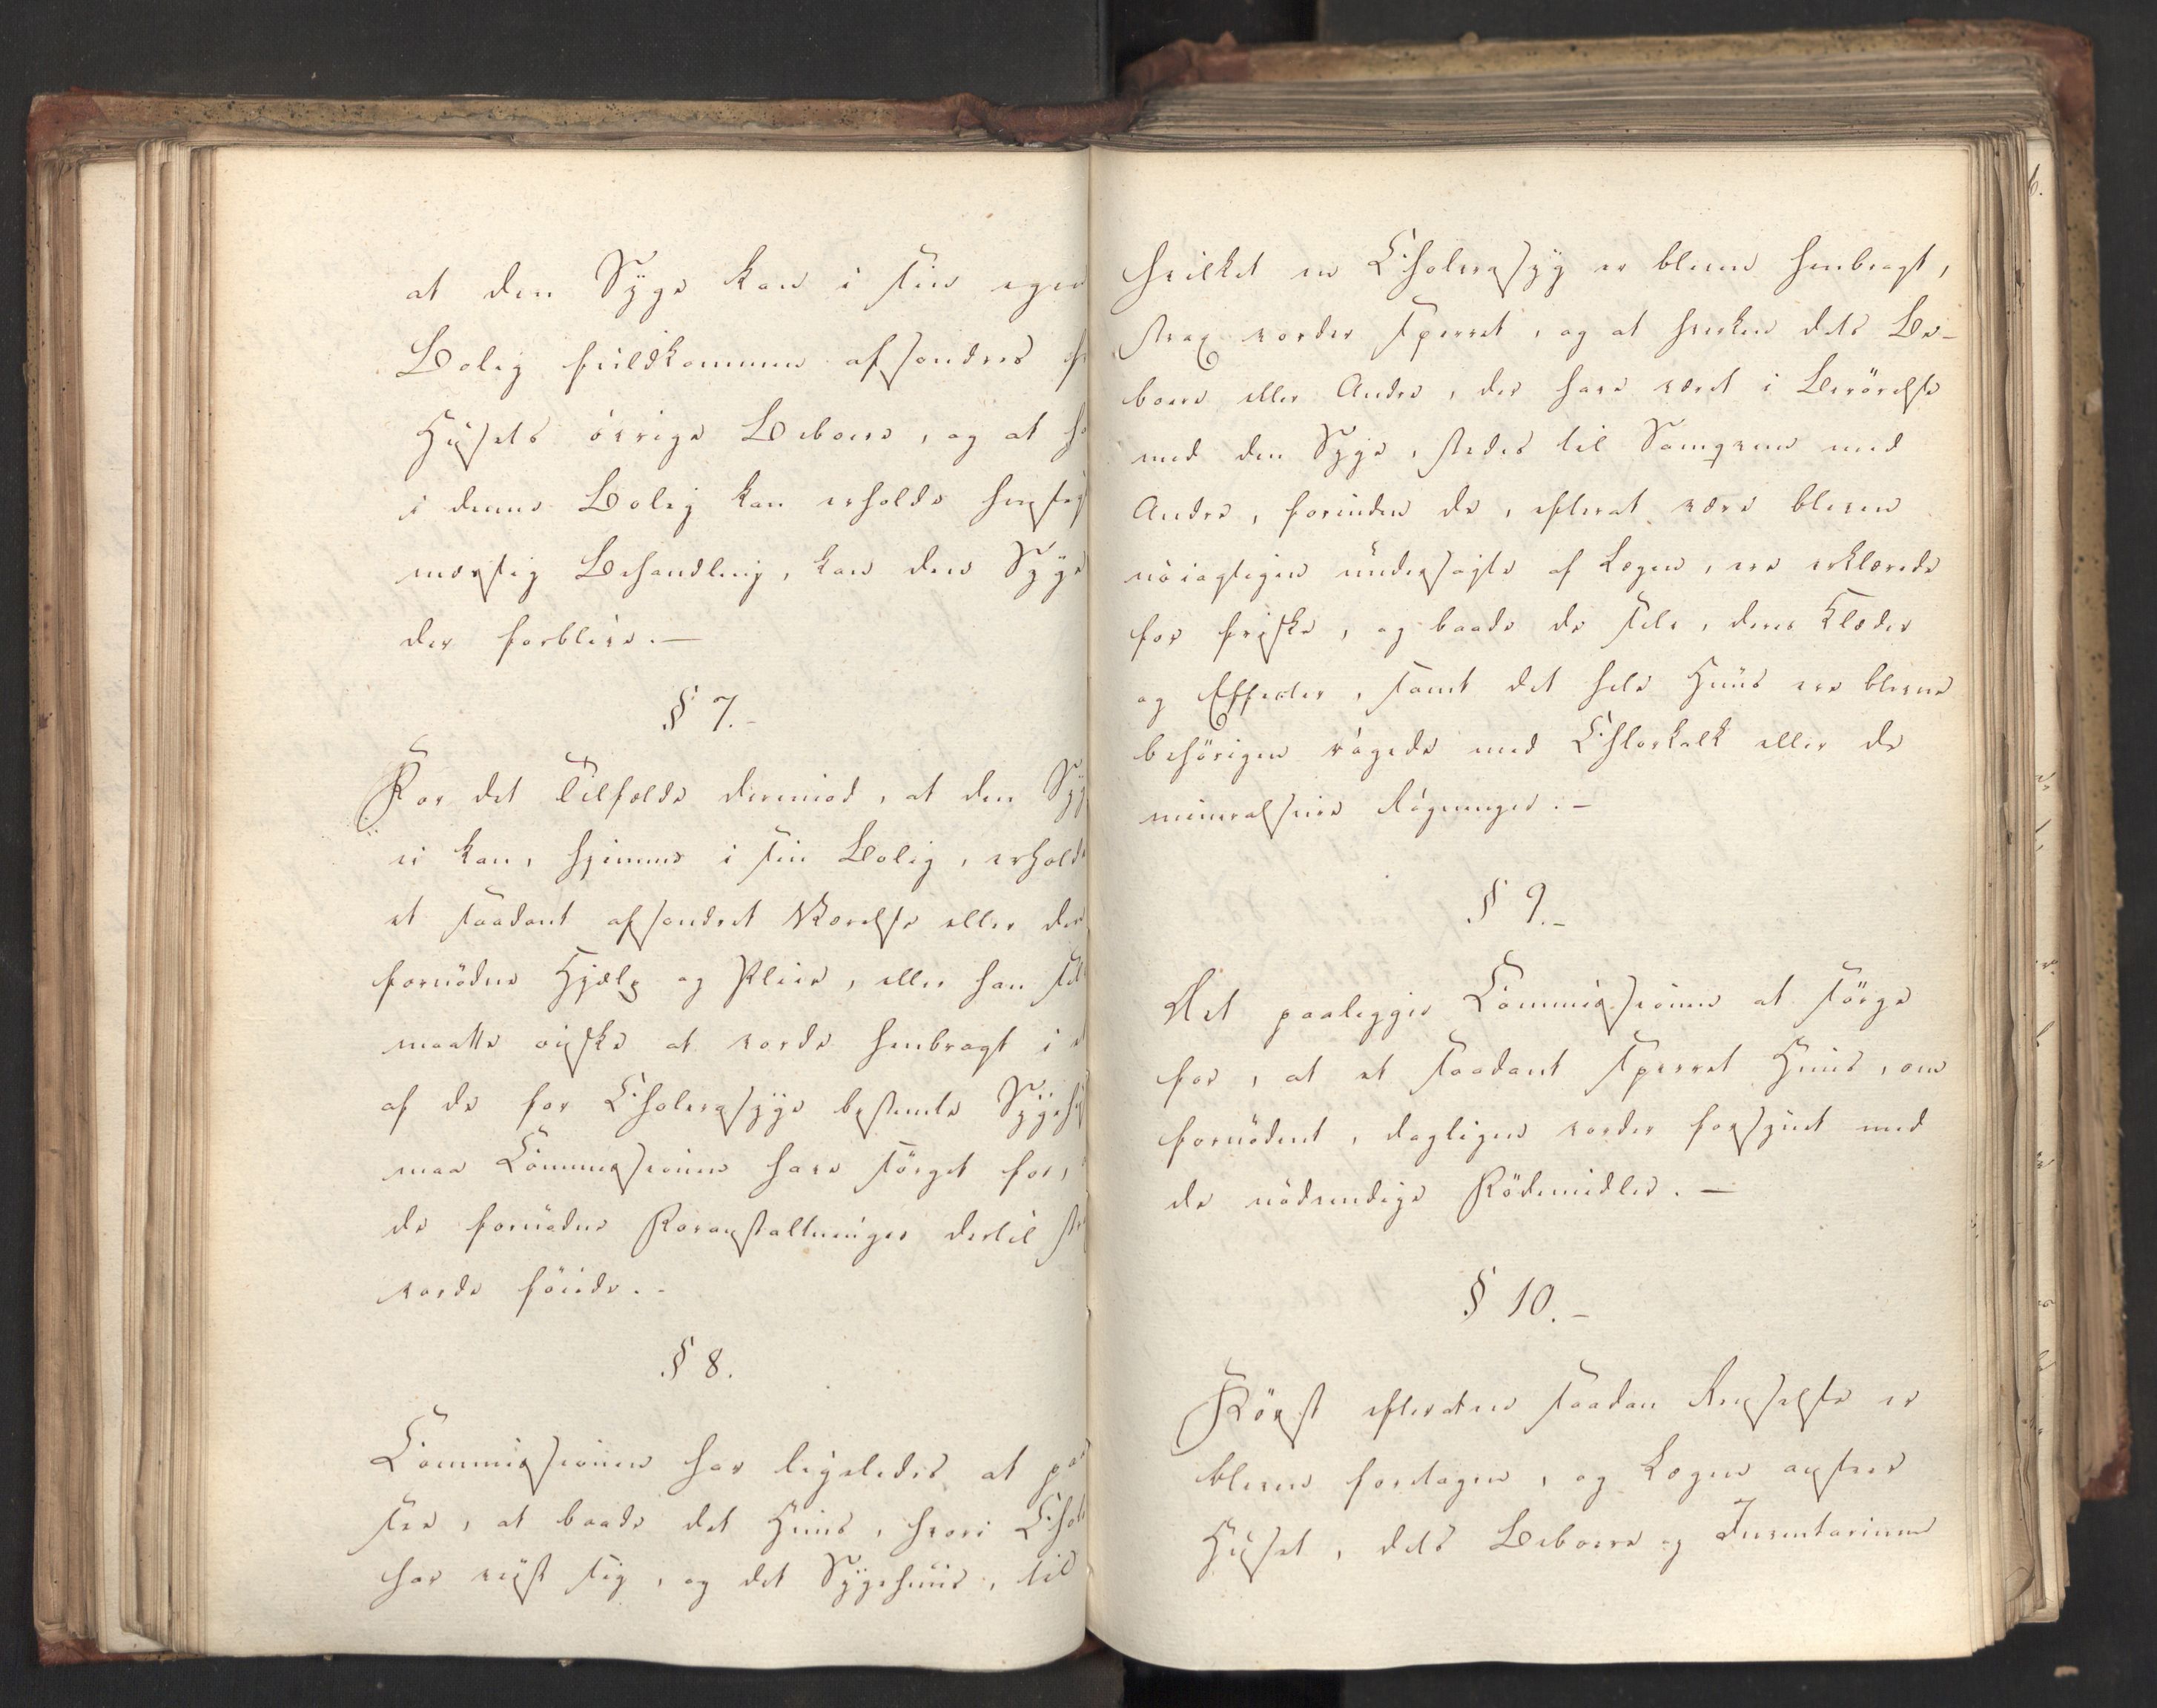 at den Syge kan i sin egen
Bolig fuldkommen afsondres
Husets övrige Beboere, og at
i denne Bolig kan erholde
mæssig Behandling, kan den Syge
der forblive.—
§ 7.-
For det Tilfælde derimod, at den
ei kan, hjemme i sin Bolig, erholde
et saadant afsondret Værelse eller den
fornödne Hjælp og Pleie, eller han
maatte önske at vorde henbragt i
af de for Cholerasyge bestemte
maa Commissionen have sörget for,
de fornödne Foranstaltninger dertil
vorde föiede.-
§ 8.
Commissionen har ligeledes at
see, at baade det Huus, hvori
har viist sig, og det Sygehuus, til
hvilket en Cholerasyg er bleven henbragt,
strax vorder sperret, og at hverken dets Be-
boere eller Andre, der have været i Berörelse
med den Syge, stedes til Samqvem med
Andre, forinden de, efterat være blevne
nöiagtigen undersögte af Lægen, ere erklærede
for friske, og baade de selv, deres Klæder
og Effecter, samt det hele Huus ere blevne
behörigen rögede med Chlorkalk eller de
mineralsure Rögninger.—
§ 9.-
Det paaligger Commissionen at sörge
for, at et saadant sperret Huus, om
fornödent, dagligen vorder forsynet med
de nödvendige Födemidler.—
§ 10.-
Först efterat en saadan Renselse er
bleven foretagen, og Lægen anseer
Huset, dets Beboere og Inventarium